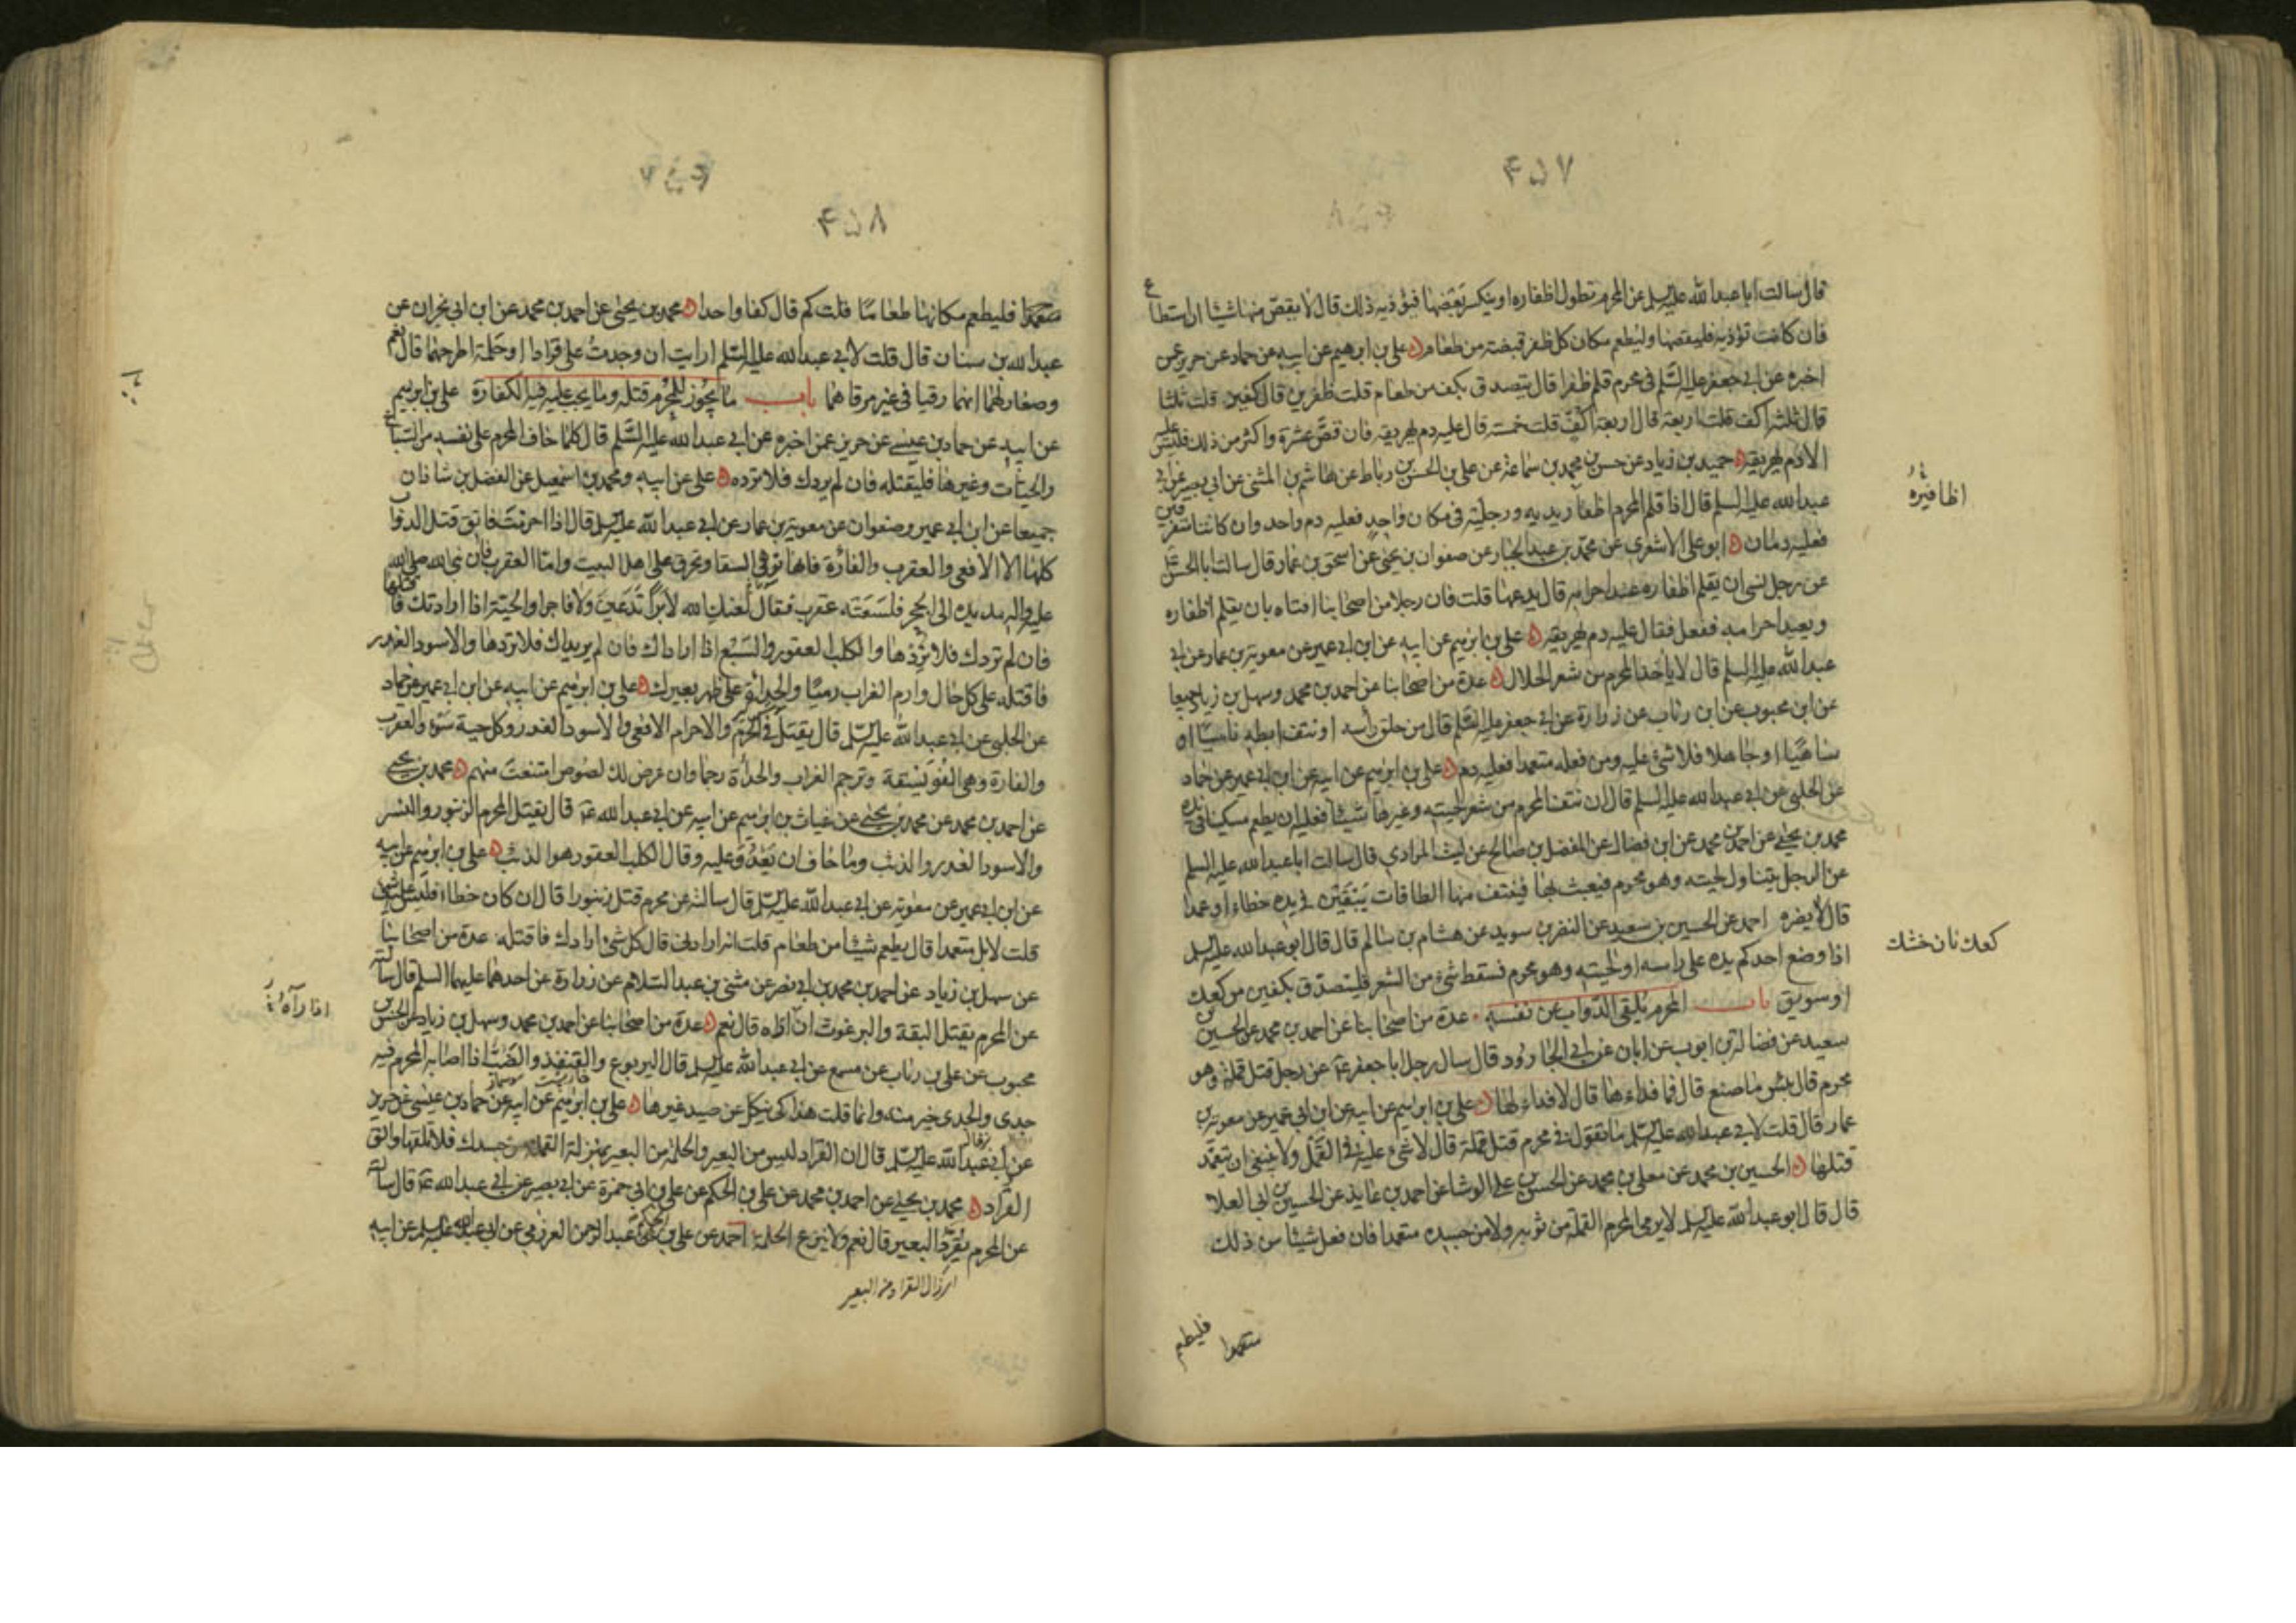 ۴۵۷
قال سالت ابا عبد الله عليه السلم عن المحرم تطول اظفاره او ينكسر بعضها فيؤذيه ذلك قال لا يقص منها شيئا ان استطاع
فان كانت تؤذيه فليقصها وليطعم مكان كل ظفر قبضة من طعام علي بن ابرهيم عن ابيه عن حماد عن حريز عمن
اخبره عن ابي جعفر عليه السلم في محرم قلم ظفرا قال يتصدق بكف من طعام قلت ظفرين قال كفين قلت ثلثا
قال ثلثة اكف قلت اربعة قال اربعة اكف قلت خمسة قال عليه دم يهريقه فان قص عشرة واكثر من ذلك فليس عليه
الا دم يهريقه حميد بن زياد عن حسن بن محمد بن سماعة عن علي بن الحسن بن رباط عن هاشم بن المثنى عن ابي بصير عن ابي
عبد الله عليه السلم قال اذا قلم المحرم اظفار يديه ورجليه في مكان واحد فعليه دم واحد وان كانتا متفرقين
فعليه دمان ابو علي الاشعري عن محمد بن عبد الجبار عن صفوان بن يحيى عن اسحق بن عمار قال سالت ابا الحسن ع
عن رجل نسى ان يقلم اظفاره عند احرامه قال يدعها قلت فان رجلا من اصحابنا افتاه بان يقلم اظفاره
ويعيد احرامه ففعل فقال عليه دم يهريقه علي بن ابرهيم عن ابيه عن ابن ابي عمير عن معوية بن عمار عن ابي
عبد الله عليه السلم قال لا ياخذ المحرم من شعر الحلال عدة من اصحابنا عن احمد بن محمد وسهل بن زياد جميعا
عن ابن محبوب عن ابن رئاب عن زرارة عن ابي جعفر عليه السلم قال من حلق رأسه او نتف ابطه ناسيا او
ساهيا او جاهلا فلا شئ عليه ومن فعله متعمدا فعليه دم علي بن ابرهيم عن ابيه عن ابن ابي عمير عن حماد
عن الحلبي عن ابي عبد الله عليه السلم قال ان نتف المحرم من شعر لحيته وغيرها شيئا فعليه ان يطعم مسكينا في يده
محمد بن يحيى عن احمد بن محمد عن ابن فضال عن المفضل بن صالح عن ليث المرادي قال سالت ابا عبد الله عليه السلم
عن الرجل يتناول لحيته وهو محرم فيعبث بها فينتف منها الطاقات يبقين في يده خطاء او عمدا
قال لا يضره احمد عن الحسين بن سعيد عن النضر بن سويد عن هشام بن سالم قال قال ابو عبد الله عليه السلم
اذا وضع احدكم يده على راسه او لحيته وهو محرم فسقط شئ من الشعر فليتصدق بكفين من كعك
او سويق باب المحرم يلقي الدواب عن نفسه عدة من اصحابنا عن احمد بن محمد عن الحسين بن
سعيد عن فضالة بن ايوب عن ابان عن ابي الجارود قال سال رجل ابا جعفر ع عن رجل قتل قملة وهو
محرم قال بئس ما صنع قال فما فداءها قال لا فداء لها علي بن ابرهيم عن ابيه عن ابن ابي عمير عن معوية بن
عمار قال قلت لابي عبد الله عليه السلم ما تقول في محرم قتل قملة قال لا شئ عليه في القمل ولا ينبغي ان يتعمد
قتلها الحسين بن محمد عن معلى بن محمد عن الحسن بن علي الوشا عن احمد بن عايذ عن الحسين بن ابي العلا
قال قال ابو عبد الله عليه السلم لا يرمي المحرم القملة من ثوبه ولا من جسده متعمدا فان فعل شيئا من ذلك
متعمدا فليطعم
اظافيره
كعك نان خشك
۴۵۸
متعمدا فليطعم مكانها طعاما قلت كم قال كفا واحدا محمد بن يحيى عن احمد بن محمد عن ابن ابي نجران عن
عبد الله بن سنان قال قلت لابي عبد الله عليه السلم ارايت ان وجدت على قرادا او حلمة اطرحهما قال نعم
وصغار لهما انهما رقيا في غير مرقاهما باب ما يجوز للمحرم قتله وما يجب عليه فيه الكفارة علي بن ابرهيم
عن ابيه عن حماد بن عيسى عن حريز عمن اخبره عن ابي عبد الله عليه السلم قال كلما خاف المحرم على نفسه من السباع
والحيات وغيرها فليقتله فان لم يردك فلا ترده علي عن ابيه ومحمد بن اسمعيل عن الفضل بن شاذان
جميعا عن ابن ابي عمير وصفوان عن معوية بن عمار عن ابي عبد الله عليه السلم قال اذا احرمت فاتق قتل الدواب
كلها الا الافعى والعقرب والفارة فانها توهي السقا وتحرق على اهل البيت واما العقرب فان نبي الله صلى الله
عليه واله مد يده الى الحجر فلسعته عقرب فقال لعنك الله لا برا تدعين ولا فاجرا والحية اذا ارادتك فاقتلها
فان لم تردك فلا تردها والكلب العقور والسبع اذا ارادك فان لم يريداك فلا تردها والاسود الغدر
فاقتله على كل حال وارم الغراب رميا والحداة على ظهر بعيرك علي بن ابرهيم عن ابيه عن ابن ابي عمير عن حماد
عن الحلبي عن ابي عبد الله عليه السلم قال يقتل في الحرم والاحرام الافعى والاسود الغدر وكل حية سوء والعقرب
والفارة وهي الفويسقة وترجم الغراب والحداة رجما وان عرض لك لصوص امتنعت منهم محمد بن يحيى
عن احمد بن محمد عن محمد بن يحيى عن غياث بن ابرهيم عن ابيه عن ابي عبد الله ع قال يقتل المحرم الزنبور والنسر
والاسود الغدر والذئب وما خاف ان يعدو عليه وقال الكلب العقور هو الذئب علي بن ابرهيم عن ابيه
عن ابن ابي عمير عن معوية عن ابي عبد الله عليه السلم قال سالته عن محرم قتل زنبورا قال ان كان خطاء فليس عليه شئ
قلت لا بل متعمدا قال يطعم شيئا من طعام قلت انه ارادني قال كل شئ ارادك فاقتله عدة من اصحابنا
عن سهل بن زياد عن احمد بن محمد بن ابي نصر عن مثنى بن عبد السلام عن زرارة عن احدهما عليهما السلم قال سالته
عن المحرم يقتل البقة والبرغوث اذا اراه قال نعم عدة من اصحابنا عن احمد بن محمد وسهل بن زياد عن الحسن بن
محبوب عن علي بن رئاب عن مسمع عن ابي عبد الله عليه السلم قال اليربوع والقنفذ والضب اذا اصابه المحرم فيه
جدى والجدى خير منه وانما قلت هذا كي ينكل عن صيد غيرها علي بن ابرهيم عن ابيه عن حماد بن عيسى عن حريز
عن ابي عبد الله عليه السلم قال ان القراد ليس من البعير والحلمة من البعير بمنزلة القملة من جسدك فلا تلقها والق
القراد محمد بن يحيى عن احمد بن محمد عن علي بن الحكم عن علي بن ابي حمزة عن ابي بصير عن ابي عبد الله ع قال سالته
عن المحرم يقرد البعير قال نعم ولا ينزع الحلمة احمد عن علي بن الحكم عن عبد الرحمن العرزمي عن ابي عبد الله عليه السلم عن ابيه
اذا رآه